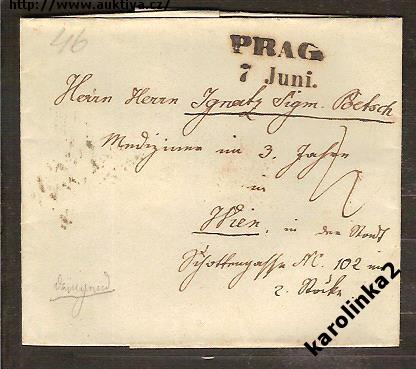 http://www.auktiva.cz/
46
PRAG
7 Juni.
Herrn Herrn Ignatz Sigm. Betsch
Mediziner im 3. Jahre
in
Wien, in der Stadt
Schottengasse N. 102 im
2. Stocke
karolinka2